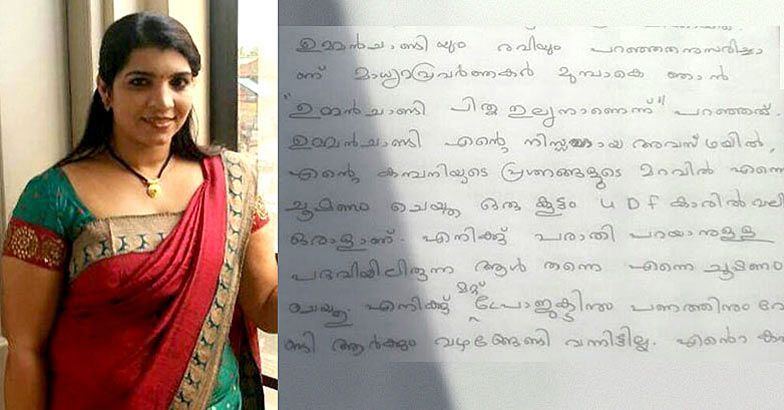 ഉമ്മൻചാണ്ടിയും രവിയും പറഞ്ഞതനുസരിച്ചാ
ണ് മാധ്യമപ്രവർത്തകർ മുമ്പാകെ ഞാൻ
"ഉമ്മൻചാണ്ടി പിതൃതുല്യനാണെന്ന്" പറഞ്ഞത്
ഉമ്മൻചാണ്ടി എന്റെ നിസ്സഹായ അവസ്ഥയിൽ,
എന്റെ കമ്പനിയുടെ പ്രശ്നങ്ങളുടെ മറവിൽ എന്നെ
ചൂഷണം ചെയ്ത ഒരു കൂട്ടം UDF കാരിൽ
ഒരാളാണ്. എനിക്ക് പരാതി പറയാനുള്ള
പദവിയിലിരുന്ന ആൾ തന്നെ എന്നെ ചൂഷണം
ചെയ്തു. എനിക്ക് മറ്റ് പ്രോജക്ടിനും പണത്തിനും വേ
ണ്ടി ആർക്കും വഴങ്ങേണ്ടി വന്നിട്ടില്ല. എന്റെ